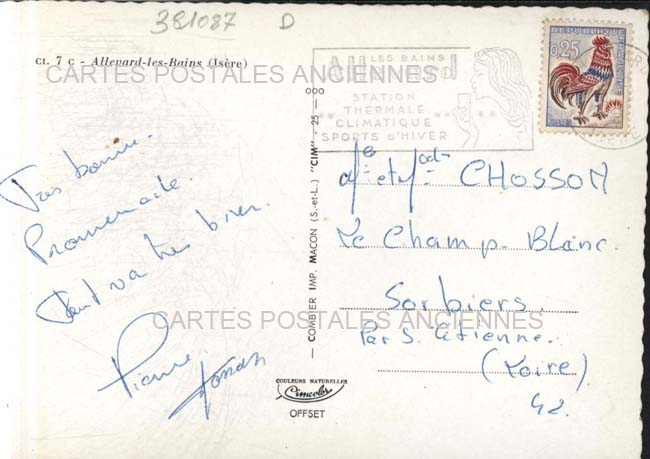 381087 D
CI. 7 C - Allevard-les-Bains (Isère)
CARTES POSTALES ANCIENNES
LES BAINS
STATION
THERMALE
CLIMATIQUE
SPORTS D'HIVER
0,25
Très bonne
Promenade.
Tout va très bien.
Pierre
— COMBIER IMP. MACON (S.-et-L.) "CIM" - 25 — ooo
CHOSSON
Le Champ-Blanc
Sorbiers.
Par S. Etienne.
(Loire)
42.
CARTES POSTALES ANCIENNES
COULEURS NATURELLES
Cimcolor
OFFSET